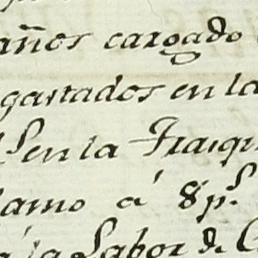 años cargado
gastados en la
en la Frasq
lamo á 8 p.s
á la Labor de C